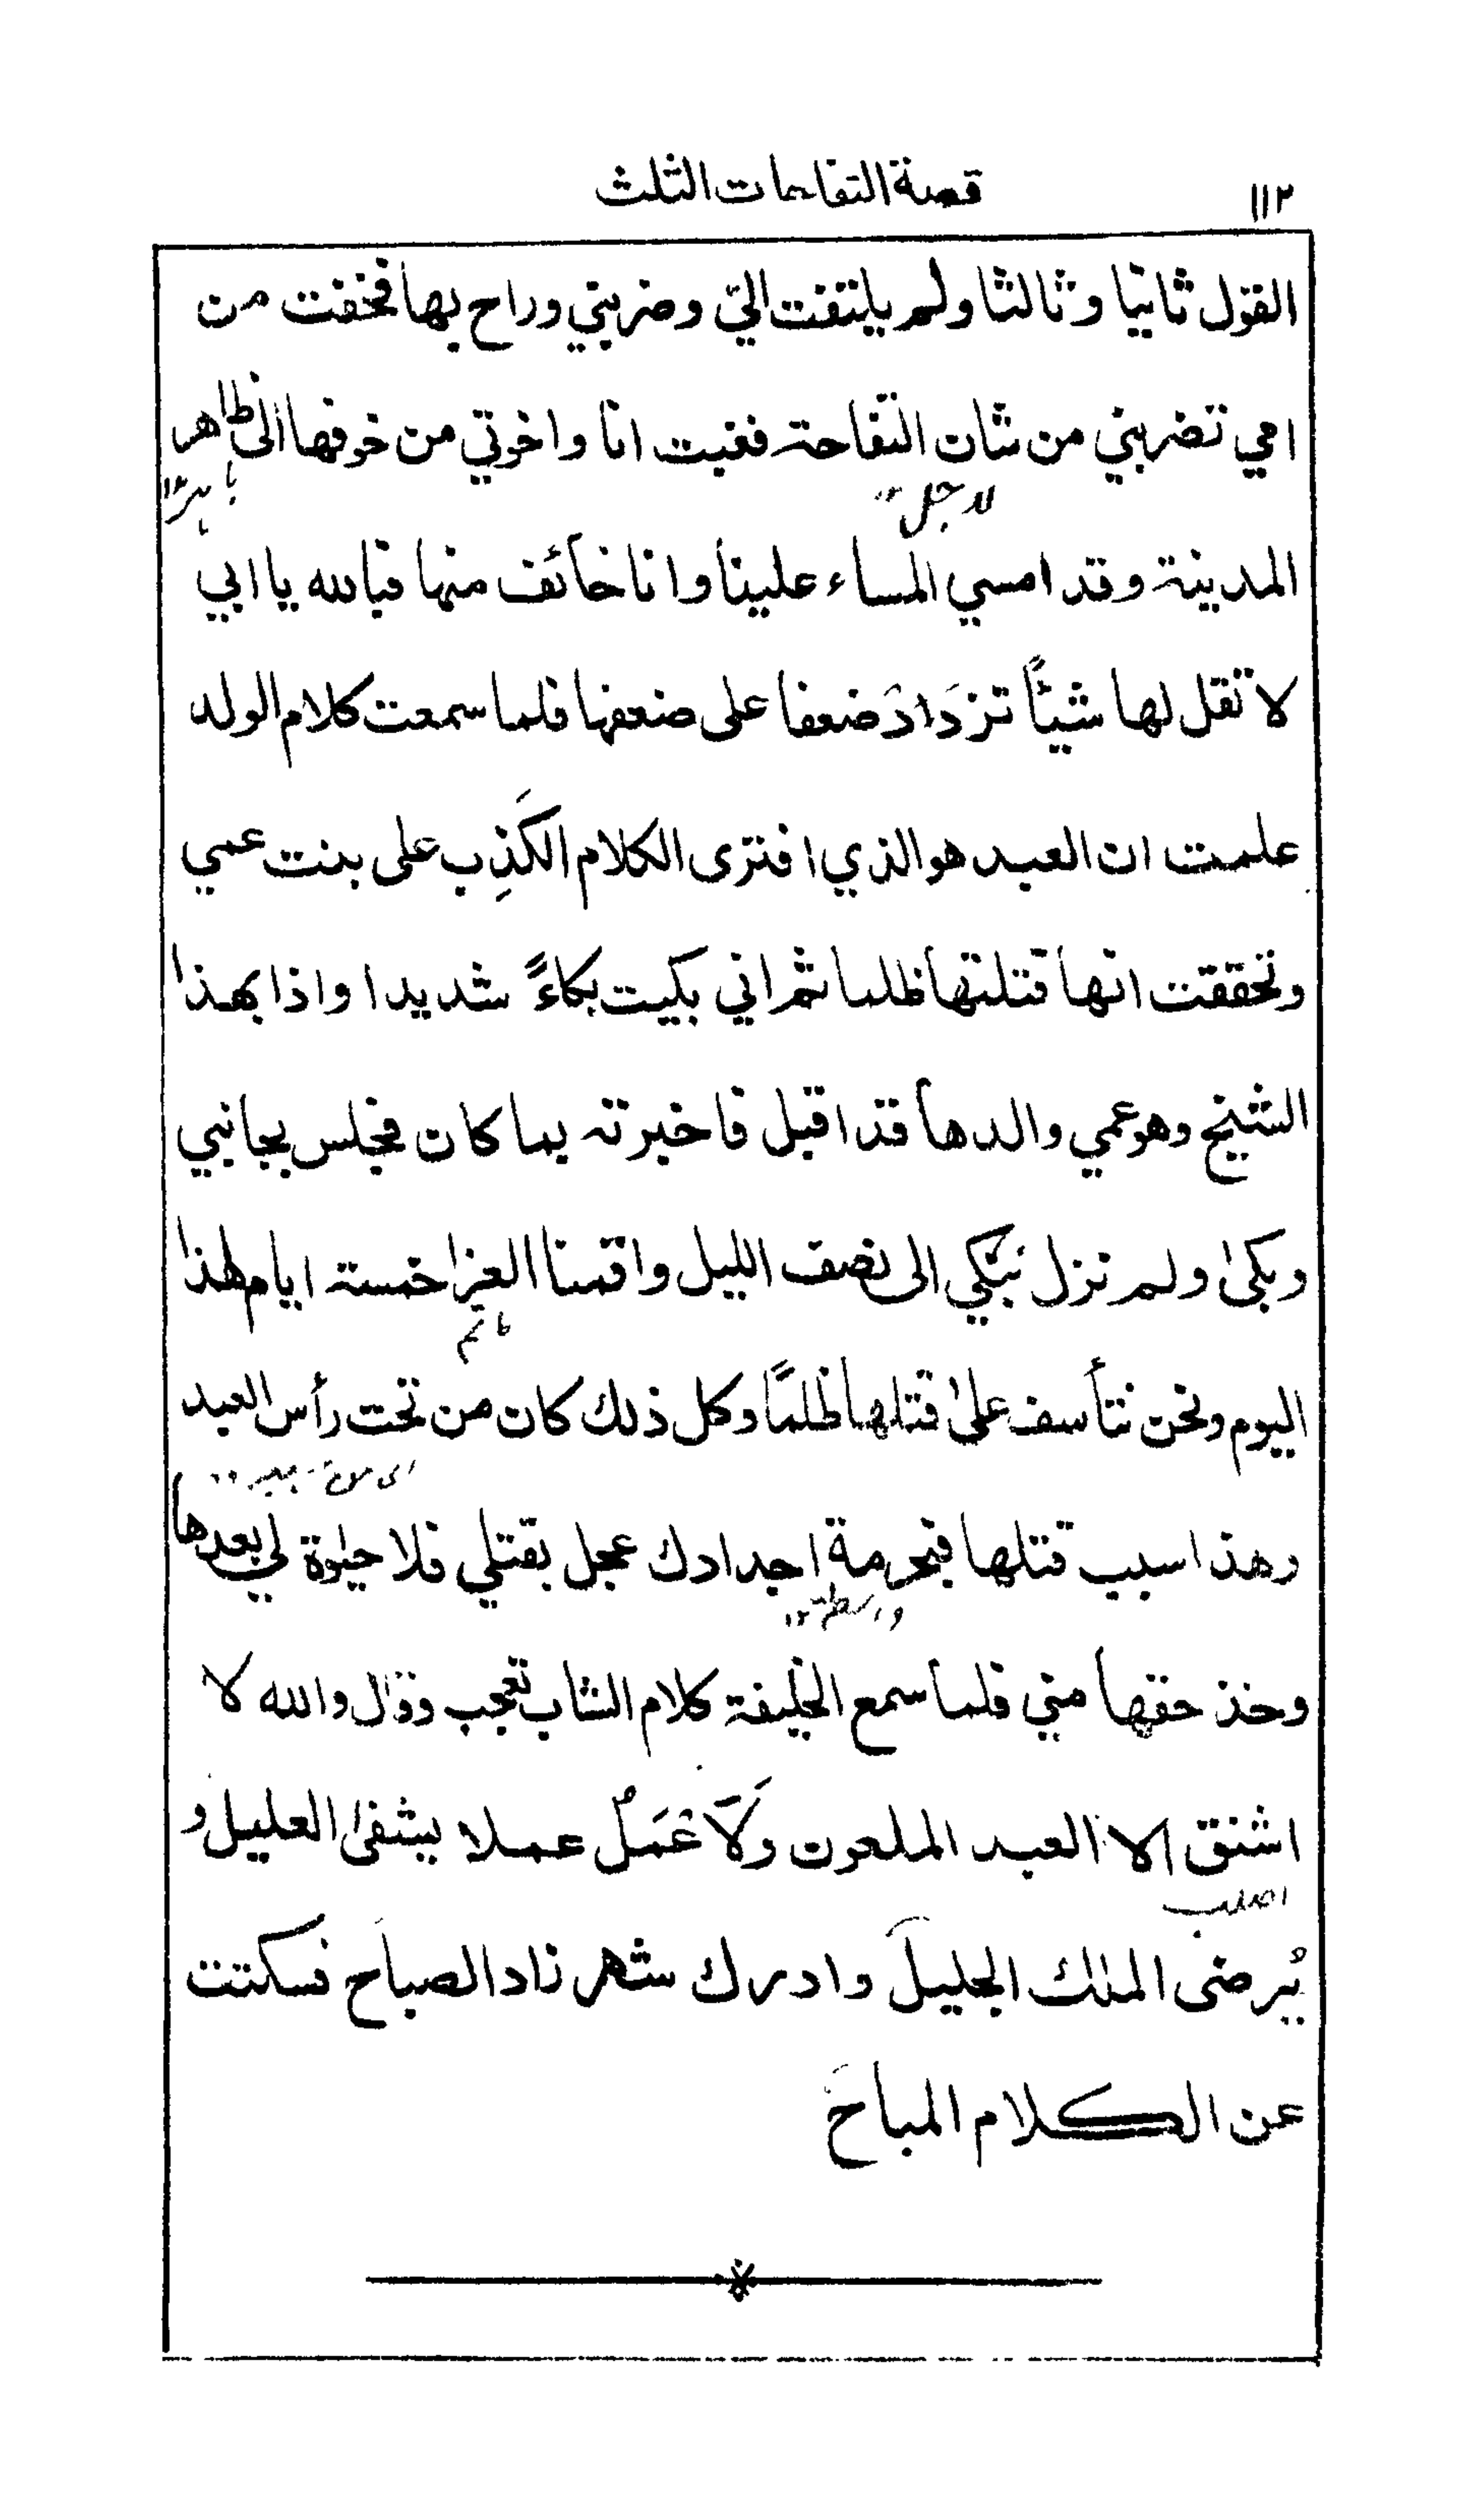 ١١٢ قصة التفاحات الثلث
القول ثانيا وثالثا ولم يلتفت اليّ وضربني وراح بها فخفت من
امي تضربني من شان التفاحة فغبت انا واخوتي من خوفها الى ظاهر
لاجل
المدينة وقد امسي المساء علينا وانا خائف منها فبالله يا ابي
لا تقل لها شيئًا تزدَادَ ضعفا على ضعفها فلما سمعت كلام الولد
علمت ان العبد هو الذي افترى الكلام الكَذِب على بنت عمي
وتحققت انها قتلتها ظلما ثم اني بكيت بكاءً شديدا واذا بهذا
الشيخ وهو عمي والدها قد اقبل فاخبرته بما كان فجلس بجانبي
وبكىٰ ولم نزل نبكي الى نصف الليل واقمنا العزا خمسة ايام لهذا
ماتم
اليوم ونحن نتأسف علىٰ قتلها ظلمًا وكل ذلك كان من تحت رأس العبد
وهذا سبب قتلها فبحرمة اجدادك عجل بقتلي فلا حيٰوة لي بعدها
وخذ حقها مني فلما سمع الخليفة كلام الشاب تعجب وقال والله لا
اشنق الا العبد الملعون وَلَاَعْمَلُ عملا يشفىٰ العليل و
اصلب
يُرضى الملك الجليلَ وادرك شهر زاد الصباح فسكتت
عن الكلام المباح